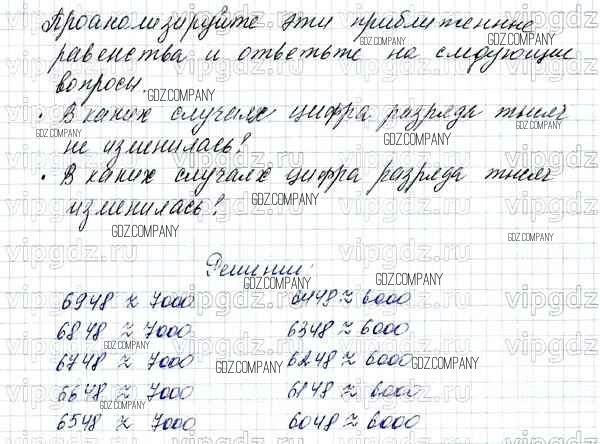 Проанализируйте эти приближенные
равенства и ответьте на следующии
вопросы.
• В каких случаях цифра разряда тысяч
не изменилась?
• В каких случаях цифра разряда тысяч
изменилась?
Решение:
6948 ≈ 7000 6448 ≈ 6000
6848 ≈ 7000 6348 ≈ 6000
6748 ≈ 7000 6248 ≈ 6000
6648 ≈ 7000 6148 ≈ 6000
6548 ≈ 7000 6048 ≈ 6000
GDZ.COMPANY
vipgdz.ru